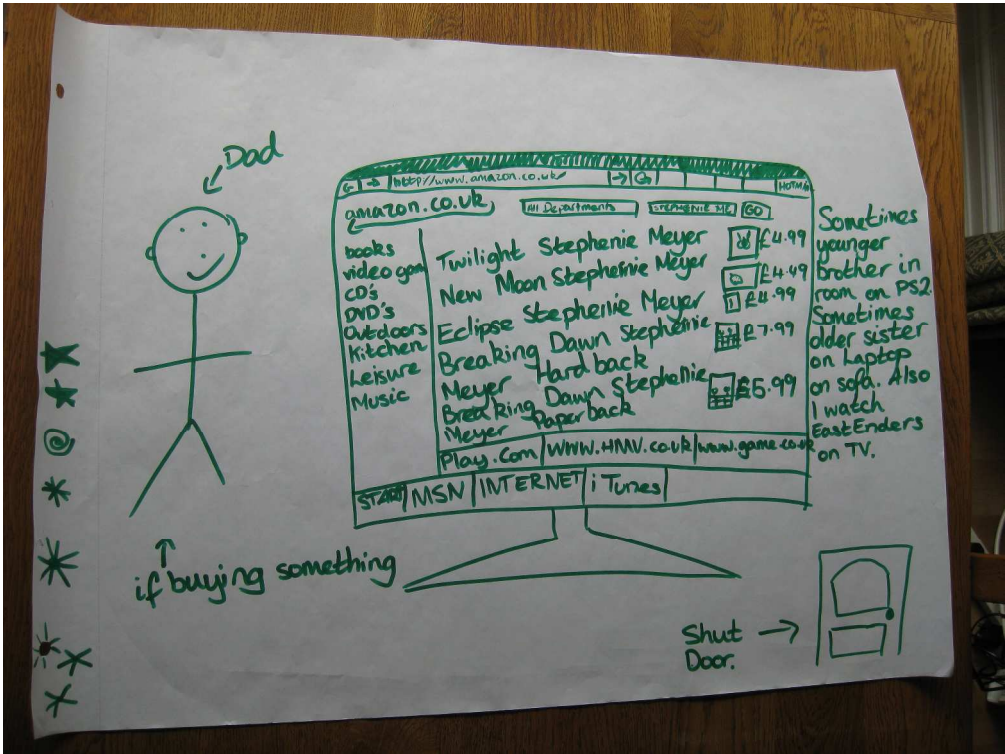 Dad
if buying something
http://www.amazon.co.uk/
HOTMA
amazon.co.uk
All Departments
STEPHENIE ME
GO
books
video gam
CD's
DVD's
Outdoors
Kitchen
Leisure
Music
Twilight Stephenie Meyer
£4.99
New Moon Stephenie Meyer
£4.49
Eclipse Stephenie Meyer
£4.99
Breaking Dawn Stephenie
Meyer Hardback
£7.99
Breaking Dawn Stephenie
Meyer Paperback
£5.99
Play.com
www.HMV.co.uk
www.game.co.uk
START
MSN
INTERNET
iTunes
Sometimes
younger
brother in
room on PS2.
Sometimes
older sister
on Laptop
on sofa. Also
I watch
EastEnders
on TV.
Shut
Door.